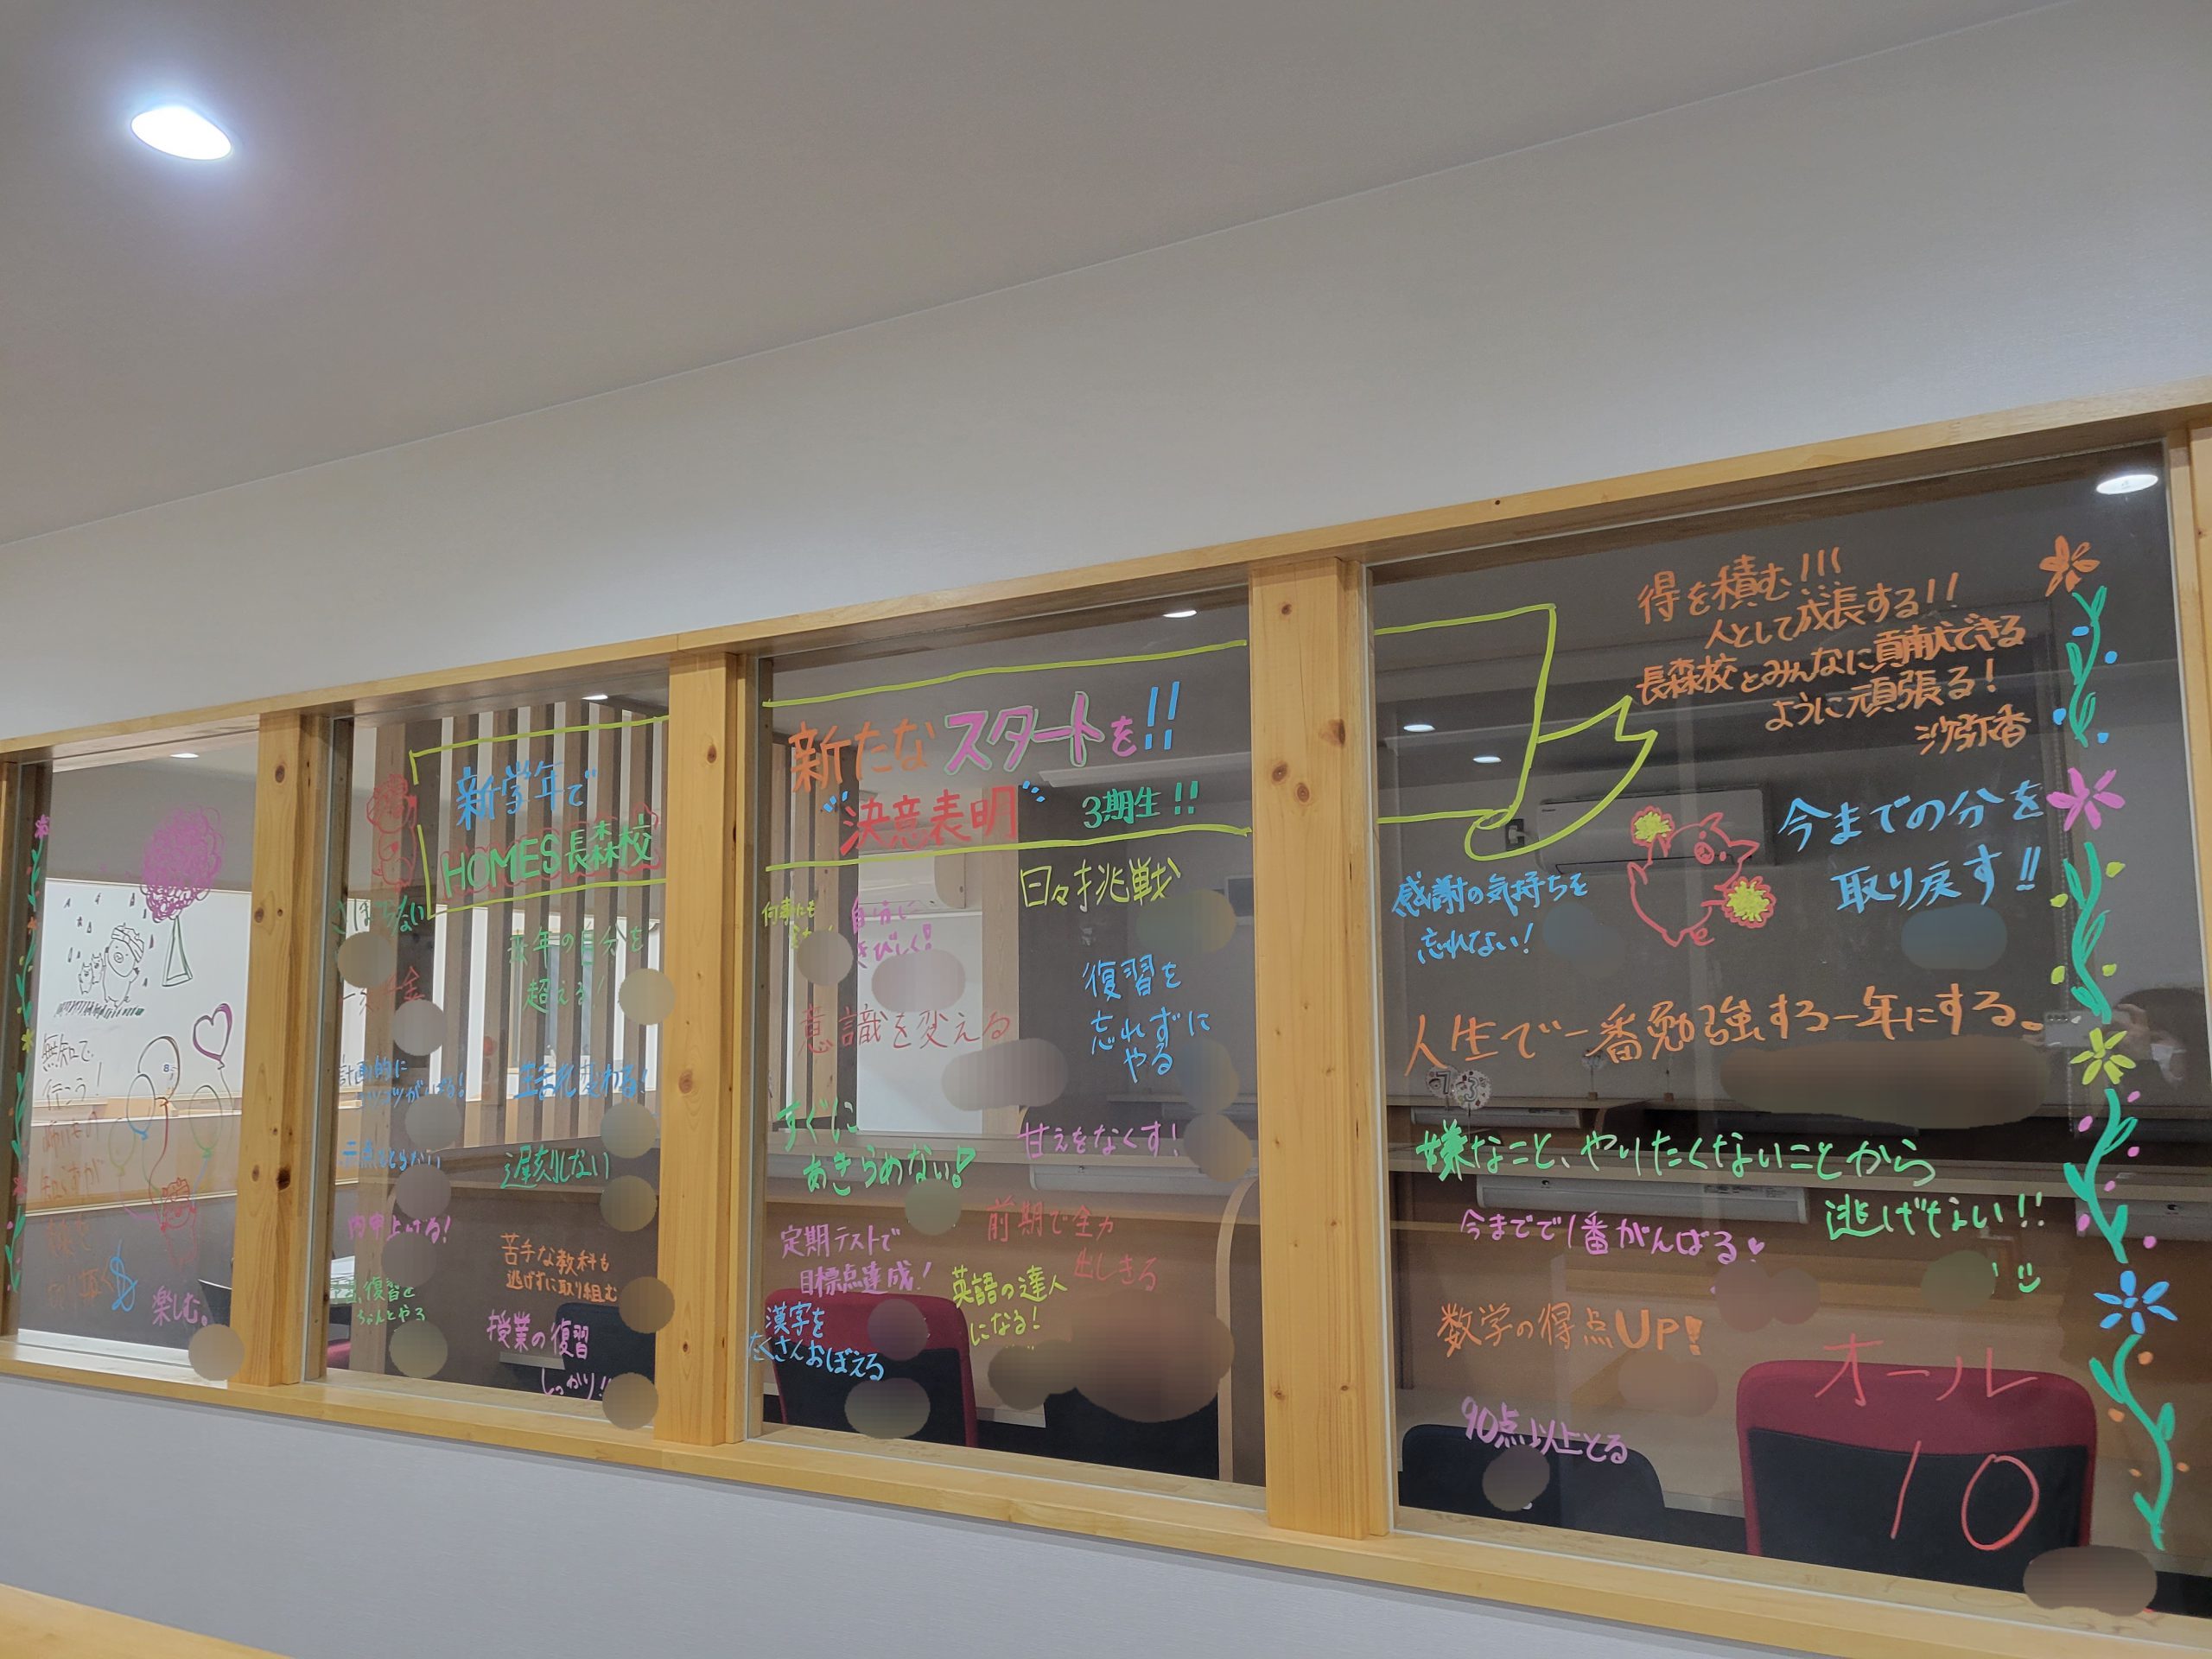 無知で
行こう！
楽しむ。
新学年で
HOMES長森校
去年の自分を
超える！
計画的に
遅刻しない
内申上げる！
苦手な教科も
逃げずに取り組む
復習を
ちゃんとやる
授業の復習
しっかり!!
新たなスタートを!!
決意表明 3期生!!
何事にも
自分に
きびしく！
日々挑戦
意識を変える
復習を
忘れずに
やる
すぐに
あきらめない！
甘えをなくす！
定期テストで
目標点達成！
前期で全力
出しきる
英語の達人
になる！
漢字を
たくさんおぼえる
得を積む!!!
人として成長する!!
長森校とみんなに貢献できる
ように頑張る！
沙弥香
今までの分を
取り戻す!!
感謝の気持ちを
忘れてない！
人生で一番勉強する一年にする。
嫌なこと、やりたくないことから
逃げない!!
今までで1番がんばる♥
数学の得点UP!
90点以上とる
オール
10